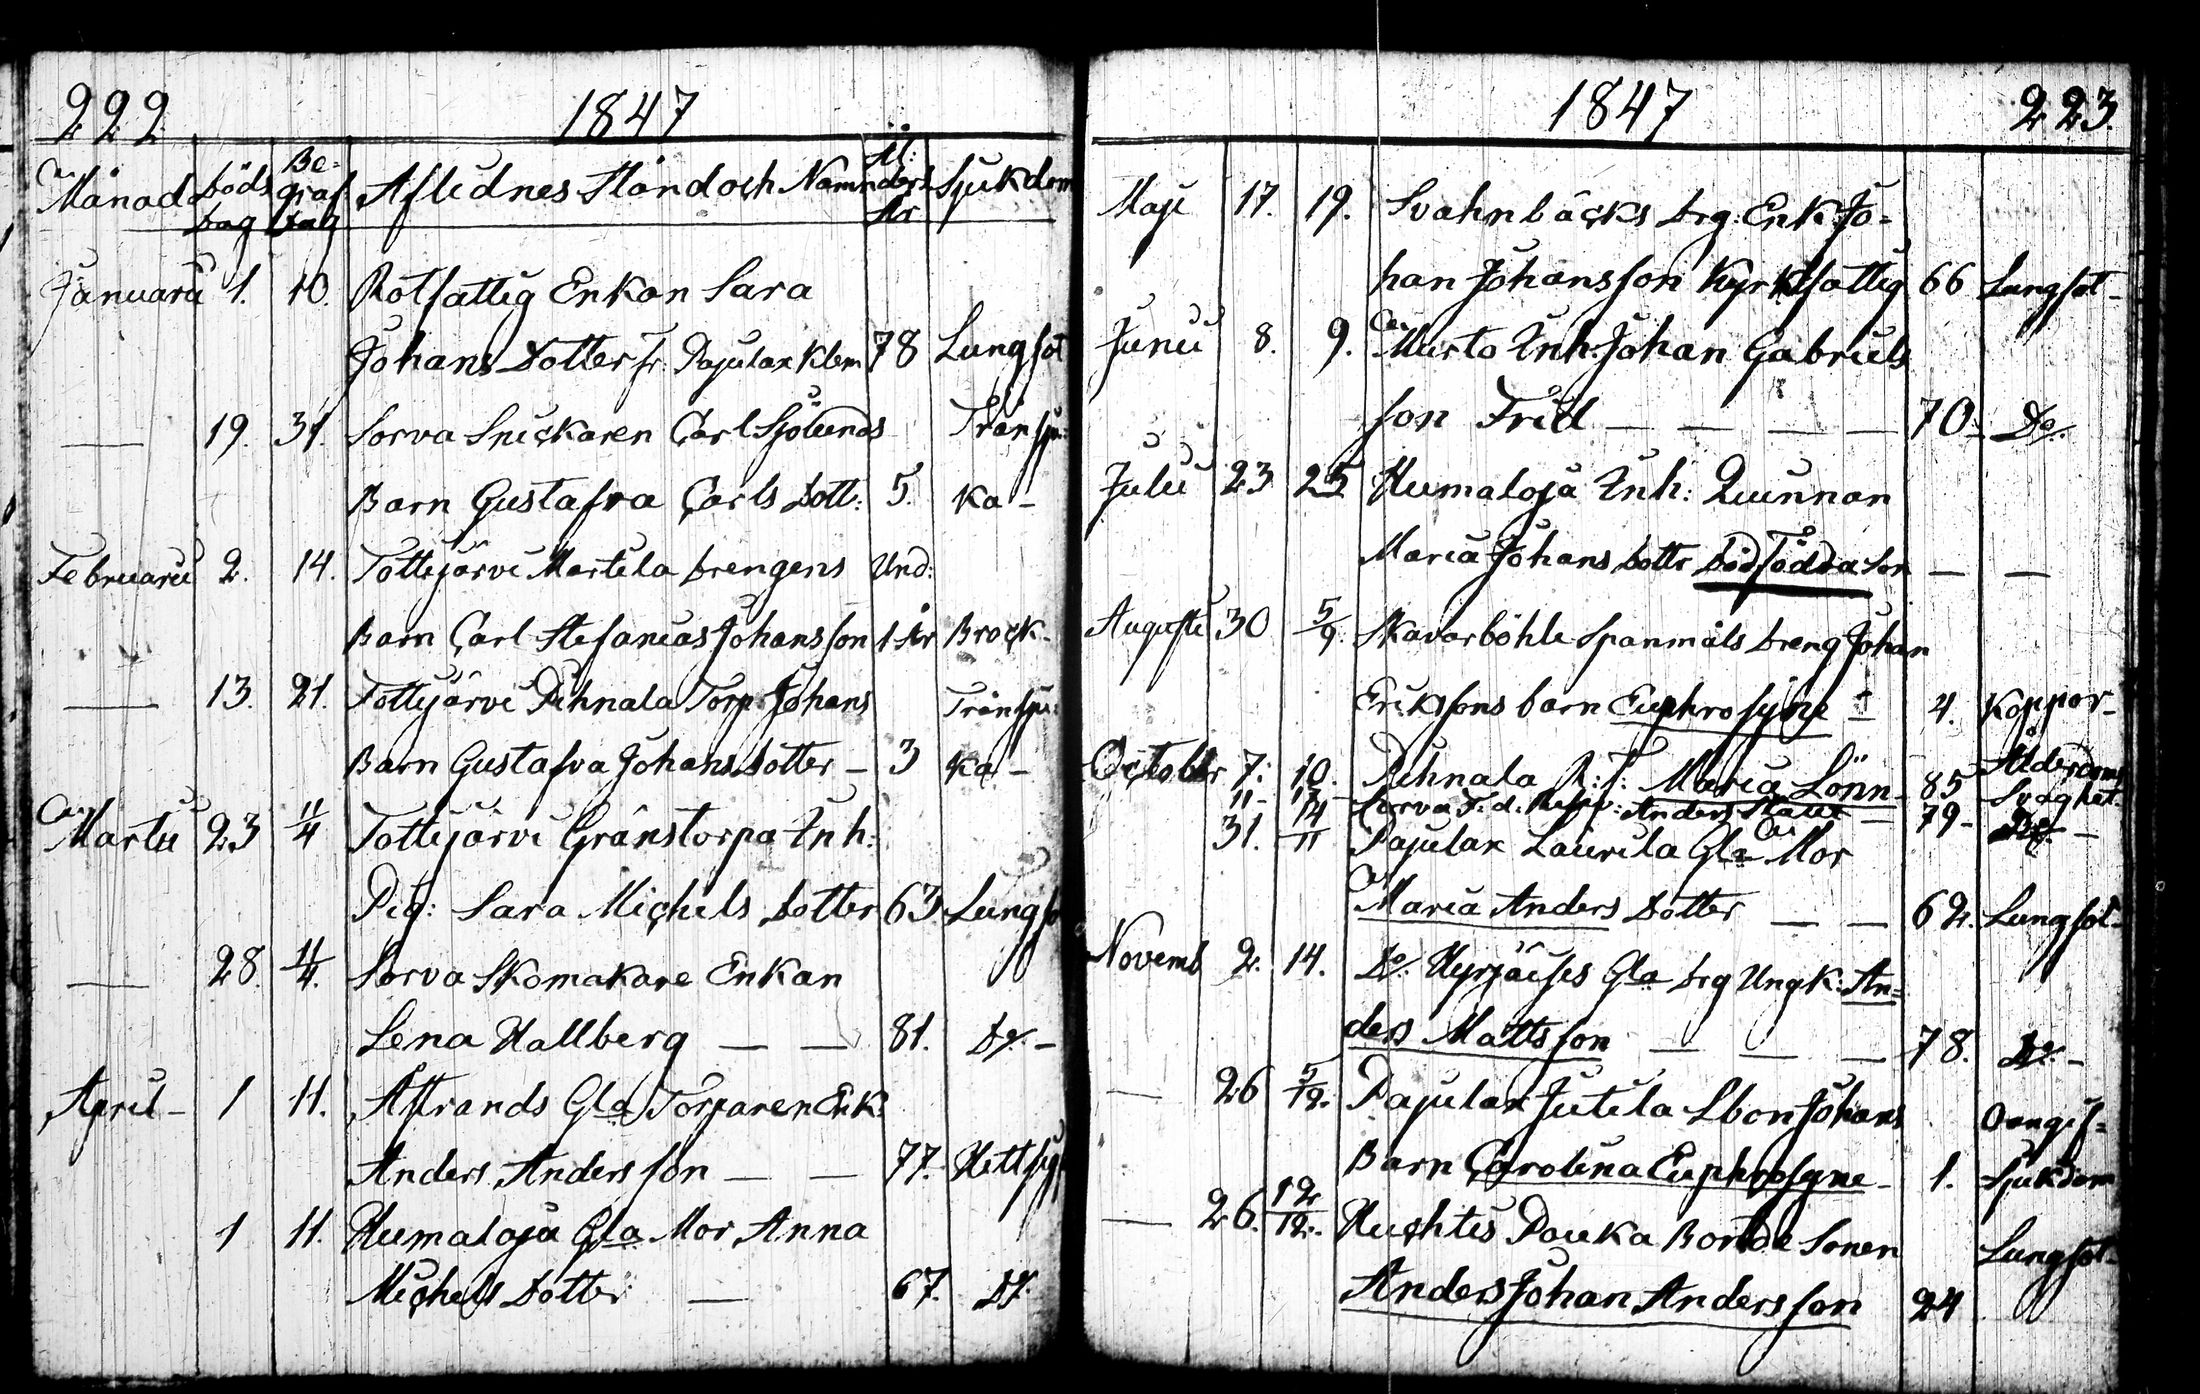 222 1847
Månad Döds dag Begraf dag Aflidnes Stånd och Namn Ålders År Sjukdom
Januarii 1. 10. Rotfattig Enkan Sara
Johans Dotter fr: Pajulax Klem 78 Lungsot
— 19. 31. Sorva Snickaren Carl Sjölunds Trånsju-
Barn Gustafva Carls Dott: 5. ka -
Februarii 2. 14. Tottijärvi Martila Drengens Und:
Barn Carl Stefanias Johansson 1 År Bråck-
— 13. 21. Tottijärvi Pihnala Torp: Johans Trånsju:
Barn Gustafva Johans Dotter - 3 ka -
Martii 23 11/4 Tottijärvi Gränstorpa Inh:
Pig: Sara Michels Dotter 63 Lungso
— 28. 11/4. Sorva Skomakare Enkan
Lena Hallberg — — 81. Do -
April - 1 11. Åstrands Gla Torparen Enk:
Anders Andersson — — 77. Hettsju
1 11. Humaloja Gla Mor Anna
Michels Dotter — 67. Do.
1847 223.
Maji 17. 19. Svahnbäcks Drg: Enk: Jo-
han Johansson Kyrkfattig 66 Lungsot -
Junii 8. 9. Murto Inh: Johan Gabriels
son Frid — — — — 70. Do.
Julii 23 25 Humaloja Inh: Qvinnan
Maria Johans Dottr Dödfödda Son — —
Augusti 30 5/9. Skavarböhle Spanmåls Dreng Johan
Erikssons barn Euphrosyne — 4. Koppor-
October 7. 10. Pihnala R: T: Maria Lönn - 85 Ålderdoms
11 - 17 - Sorva F. d. Anders - 79 - Svaghet.
31. 14/11 Pajulax Laurila Gla Mor Do -
Maria Anders Dotter — — 62. Lungsot -
Novemb 2. 14. Do. Hyrjäises Gla Drg Ungk: An=
ders Mattsson — — — 78. Do. -
— 26 5/12. Pajulax Jutila Sbon Johans Oangif=
Barn Carolina Euphrosyne - 1. Sjukdom
— 26. 12/12. Huchtis Pouka Bonde Sonen Lungsot -
Anders Johan Andersson 24